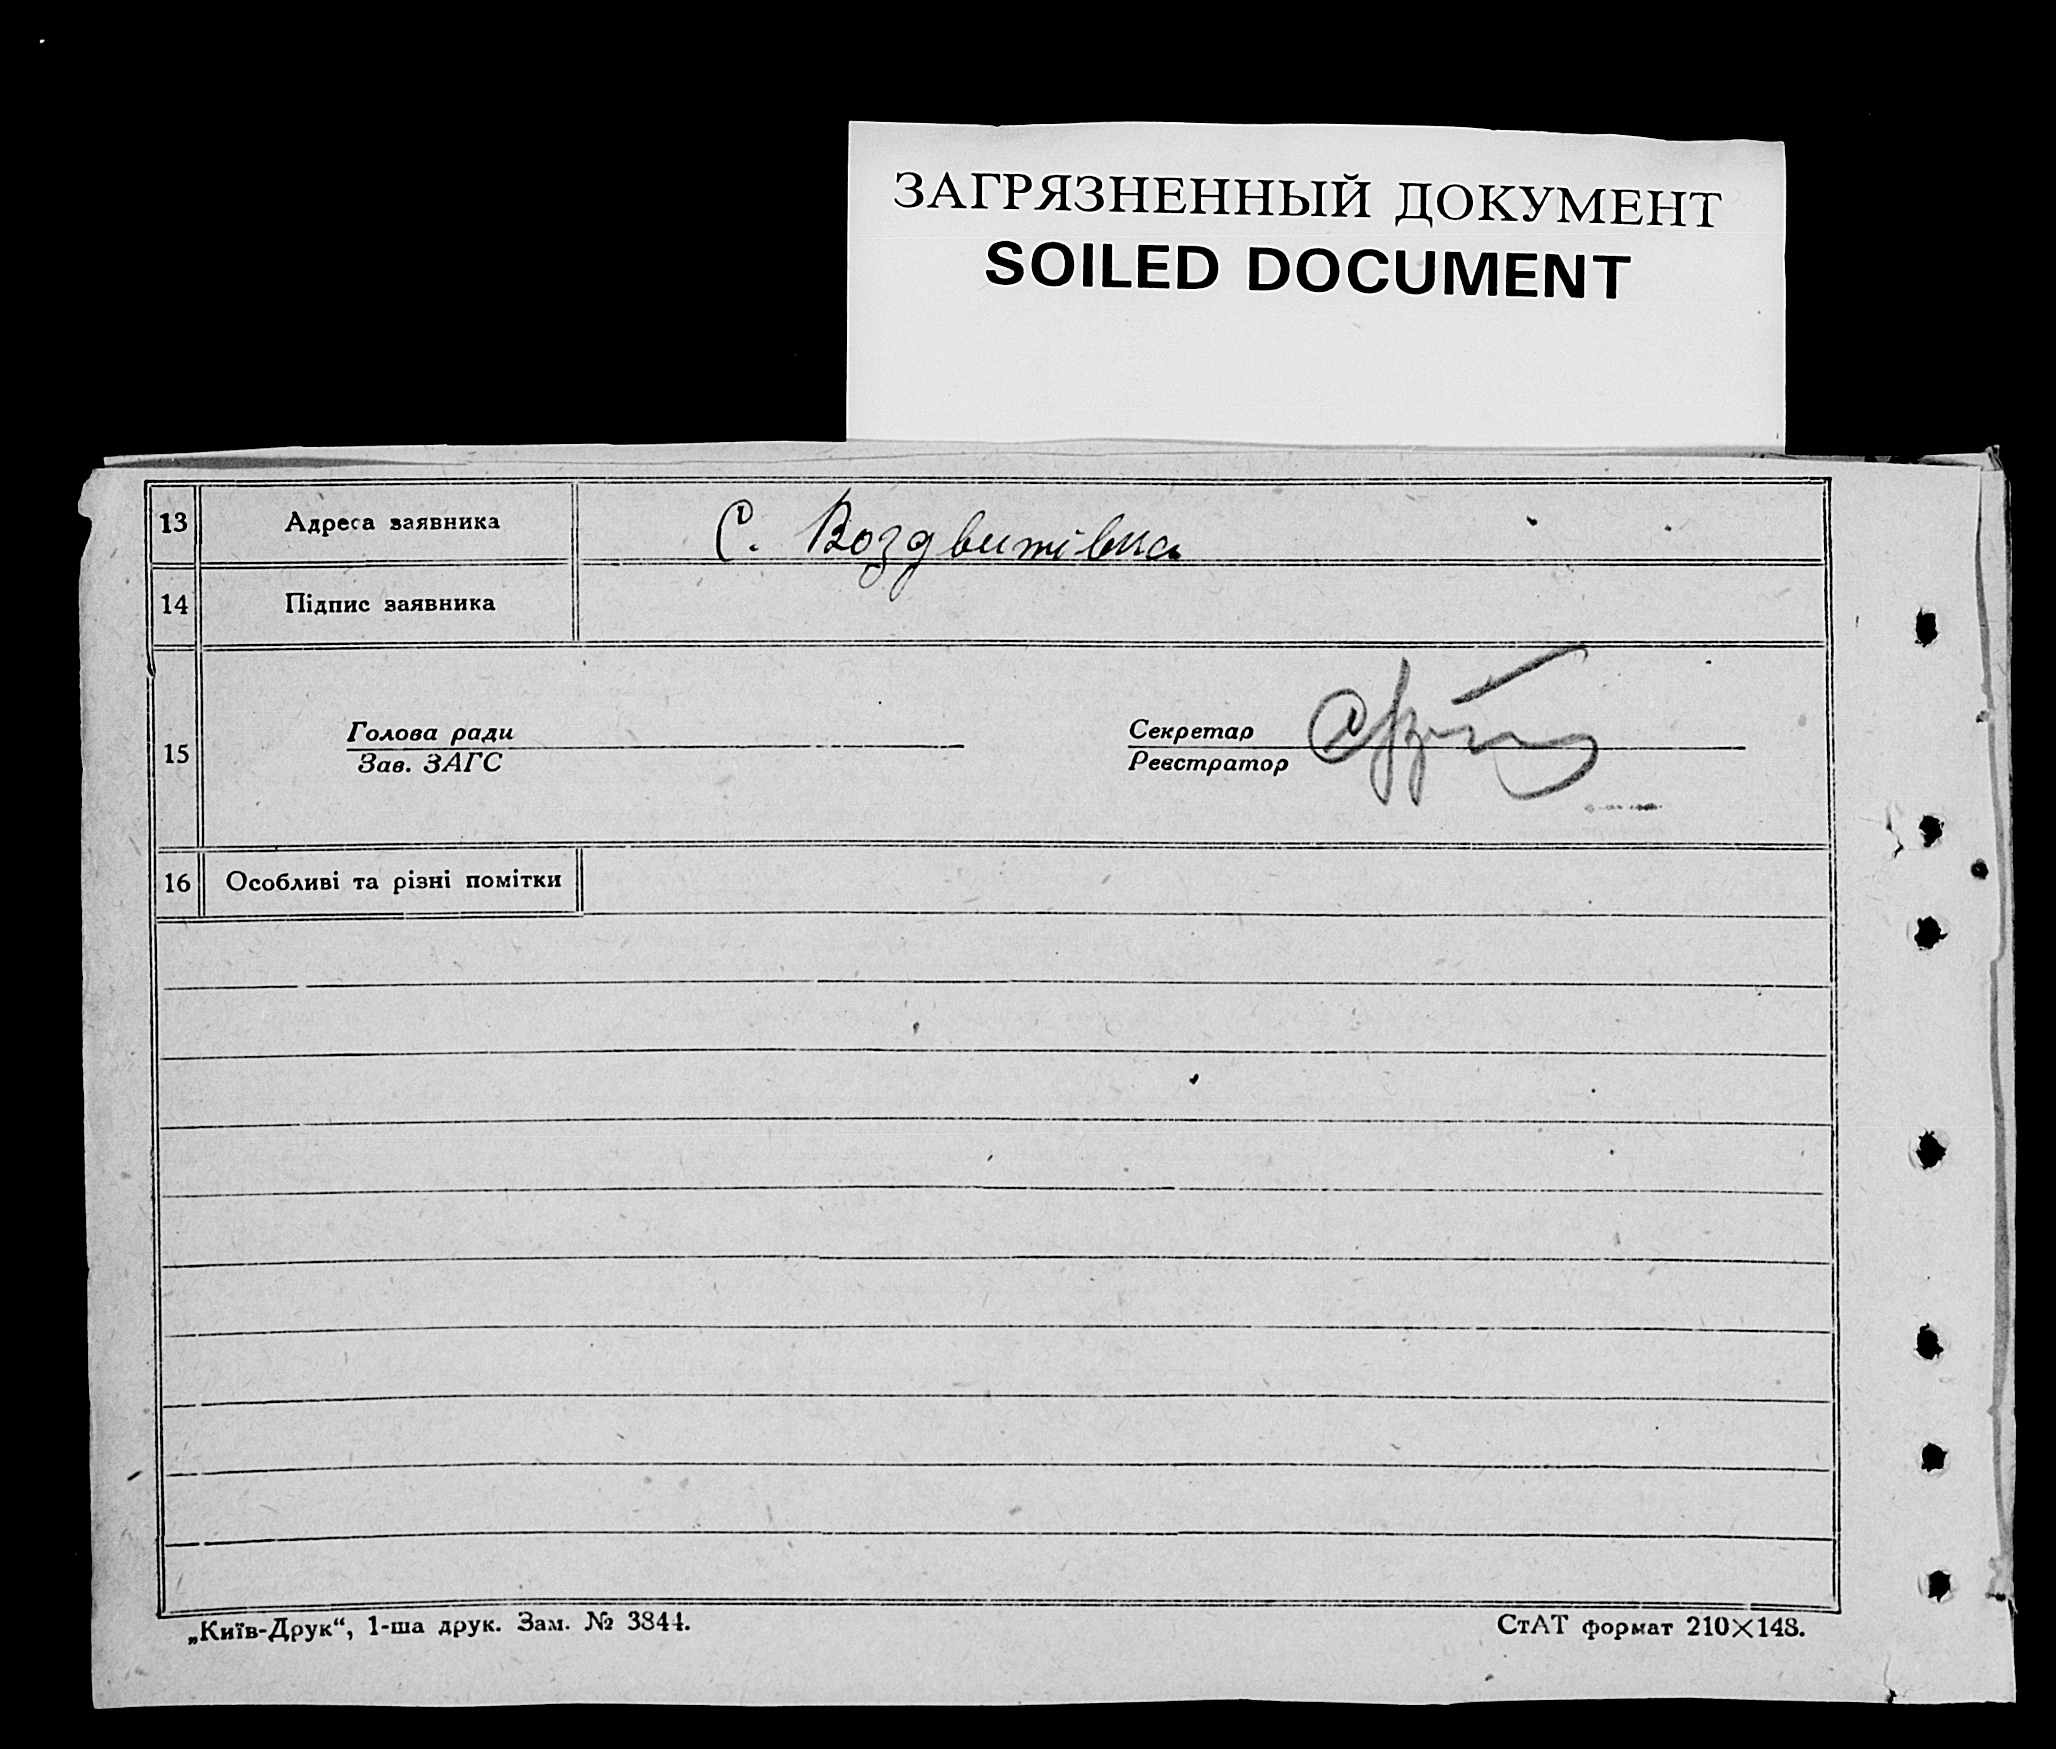 ЗАГРЯЗНЕННЫЙ ДОКУМЕНТ
SOILED DOCUMENT
13 Адреса заявника С. Воздвитівка
14 Підпис заявника
15 Голова ради Секретар
Зав. ЗАГС Реєстратор
16 Особливі та різні помітки
„Київ-Друк“, 1-ша друк. Зам. № 3844. СтАТ формат 210×148.